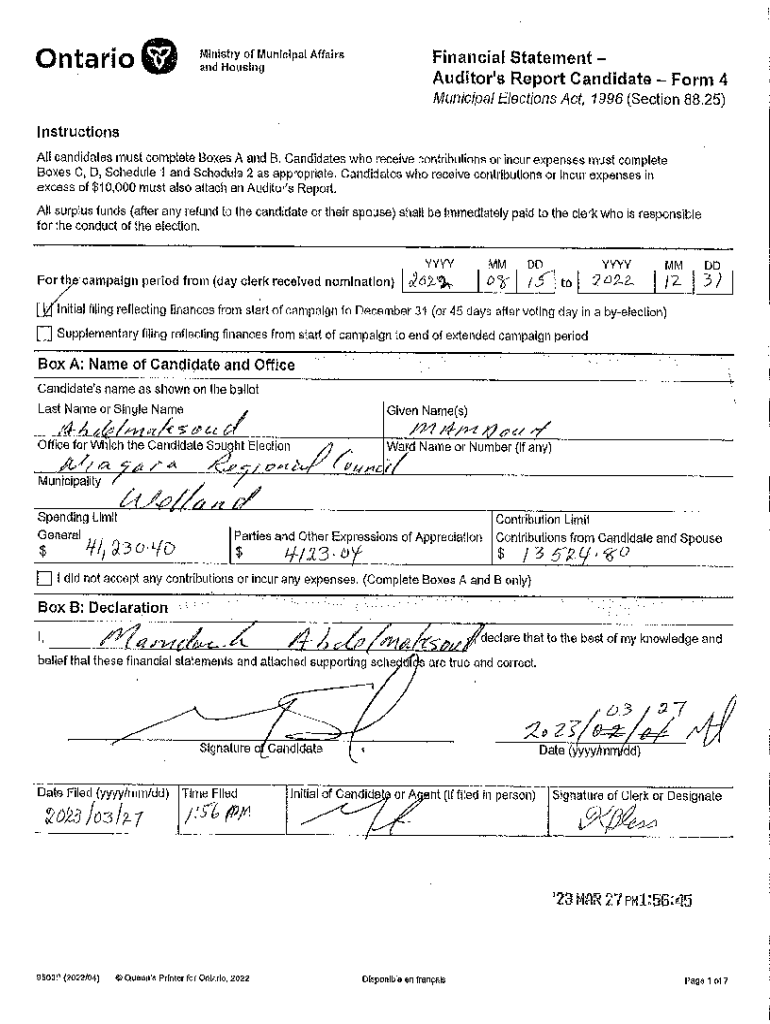 Ontario
Ministry of Municipal Affairs
and Housing
Financial Statement –
Auditor's Report Candidate – Form 4
Municipal Elections Act, 1996 (Section 88.25)
Instructions
All candidates must complete Boxes A and B. Candidates who receive contributions or incur expenses must complete
Boxes C, D, Schedule 1 and Schedule 2 as appropriate. Candidates who receive contributions or incur expenses in
excess of $10,000 must also attach an Auditor's Report.
All surplus funds (after any refund to the candidate or their spouse) shall be immediately paid to the clerk who is responsible
for the conduct of the election.
YYYY MM DD YYYY MM DD
For the campaign period from (day clerk received nomination) 2022 08 15 to 2022 12 31
Initial filing reflecting finances from start of campaign to December 31 (or 45 days after voting day in a by-election)
Supplementary filing reflecting finances from start of campaign to end of extended campaign period
Box A: Name of Candidate and Office
Candidate's name as shown on the ballot
Last Name or Single Name Given Name(s)
Abdelmaksoud MAMDouh
Office for Which the Candidate Sought Election Ward Name or Number (if any)
Niagara Regional Council
Municipality
Welland
Spending Limit Contribution Limit
General Parties and Other Expressions of Appreciation Contributions from Candidate and Spouse
$ 41,230.40 $ 4123.04 $ 13524.80
I did not accept any contributions or incur any expenses. (Complete Boxes A and B only)
Box B: Declaration
I, Mamdouh Abdelmaksoud declare that to the best of my knowledge and
belief that these financial statements and attached supporting schedules are true and correct.
03 / 27
2023/02/01
Signature of Candidate Date (yyyy/mm/dd)
Date Filed (yyyy/mm/dd) Time Filed Initial of Candidate or Agent (if filed in person) Signature of Clerk or Designate
2023/03/27 1:56 PM
'23 MAR 27 PM1:56:45
9503P (2022/04) © Queen's Printer for Ontario, 2022 Disponible en français Page 1 of 7